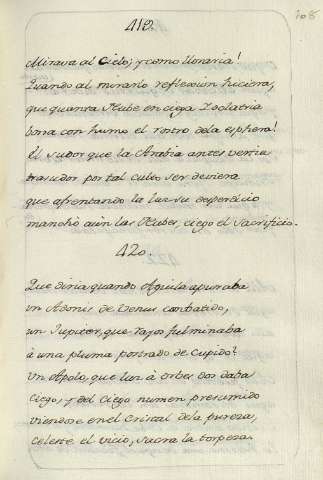 419.
108
Mirava al Cielo; y como lloraria!
Quando al mirarlo reflexion hiciera,
que quanta Nube en ciega Idolatria
borra con humo el rostro dela esphera!
El sudor que la Arabia antes vertia
trasudor por tal culto ser deviera
que afrentando la luz su desperdicio
manchó aùn las Nubes, ciego el sacrificio.
420.
Que diria quando Aguila apurava
un Adonis de Venus combatido,
un Jupiter, que rayos fulminaba
à una pluma postrado de Cupido?
Un Apolo, que luz à orbes dos daba
ciego, y del ciego numen presumido
viendose en el Cristal dela pureza,
celeste el vicio, sacra la torpeza.